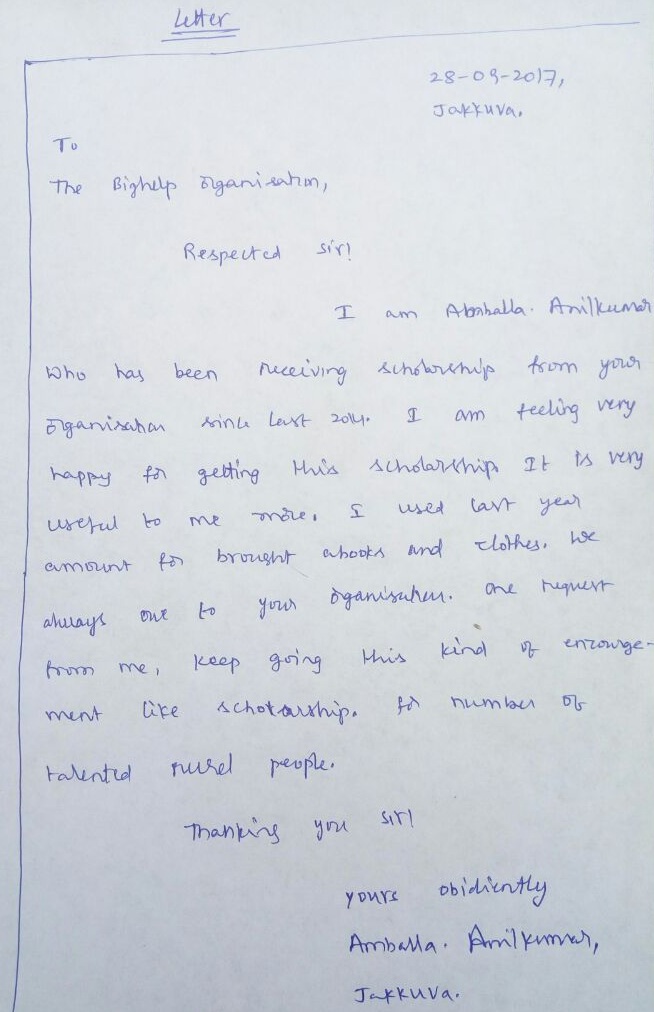 Letter
28-09-2017,
Jakkuva.
To
The Bighelp organisation,
Respected sir!
I am Ambballa. Anilkumar
who has been receiving scholorship from your
organisation since last 2014. I am feeling very
happy for getting this scholarship. It is very
useful to me more. I used last year
amount for brought abooks and clothes. We
always owe to your organisation. One request
from me, keep going this kind of encourge-
ment like scholarship. for number of
talented rurel people.
Thanking you sir!
yours obidiently
Amballa. Anilkumar,
Jakkuva.